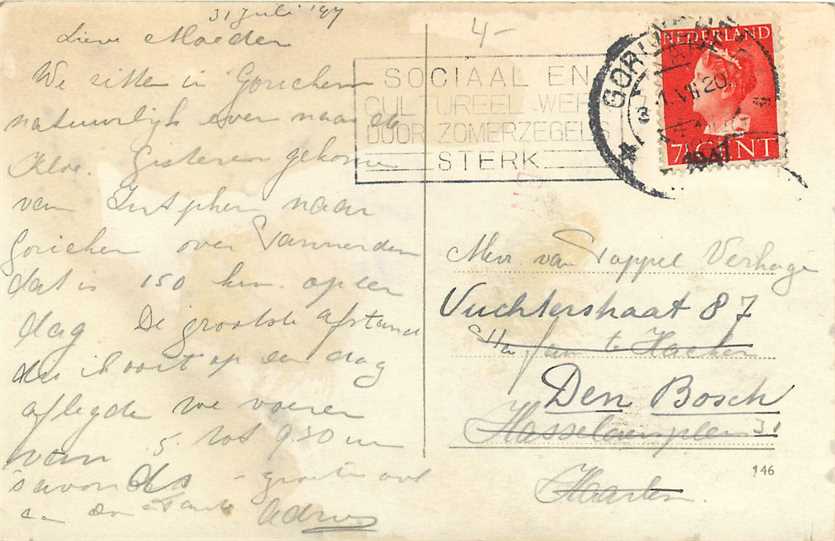 31 Juli 1947
4-
Lieve Moeder
We zitten in Gorichem
natuurlijk even naar de
Kloe. Gisteren gekomen
van Zutphen naar
Gorichem over Pannerden
dat is 150 km. op een
dag De grootste afstand
die ik ooit op een dag
aflegde we voeren
van 5 tot 930 uur
s'avonds groeten ook
aan Adrie
SOCIAAL EN
CULTUREEL WERK
DOOR ZOMERZEGELS
STERK
GORINCHEM
VII 20
1947
NEDERLAND
7½ CENT
Mevr. van Poppel Verhage
Vuchterstraat 87
Den Bosch
Hasselaerplein 31
Haarlem.
146